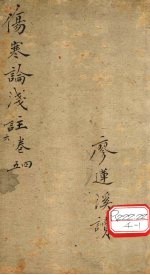 傷寒論淺註卷四
五
六
廖蓮溪讀